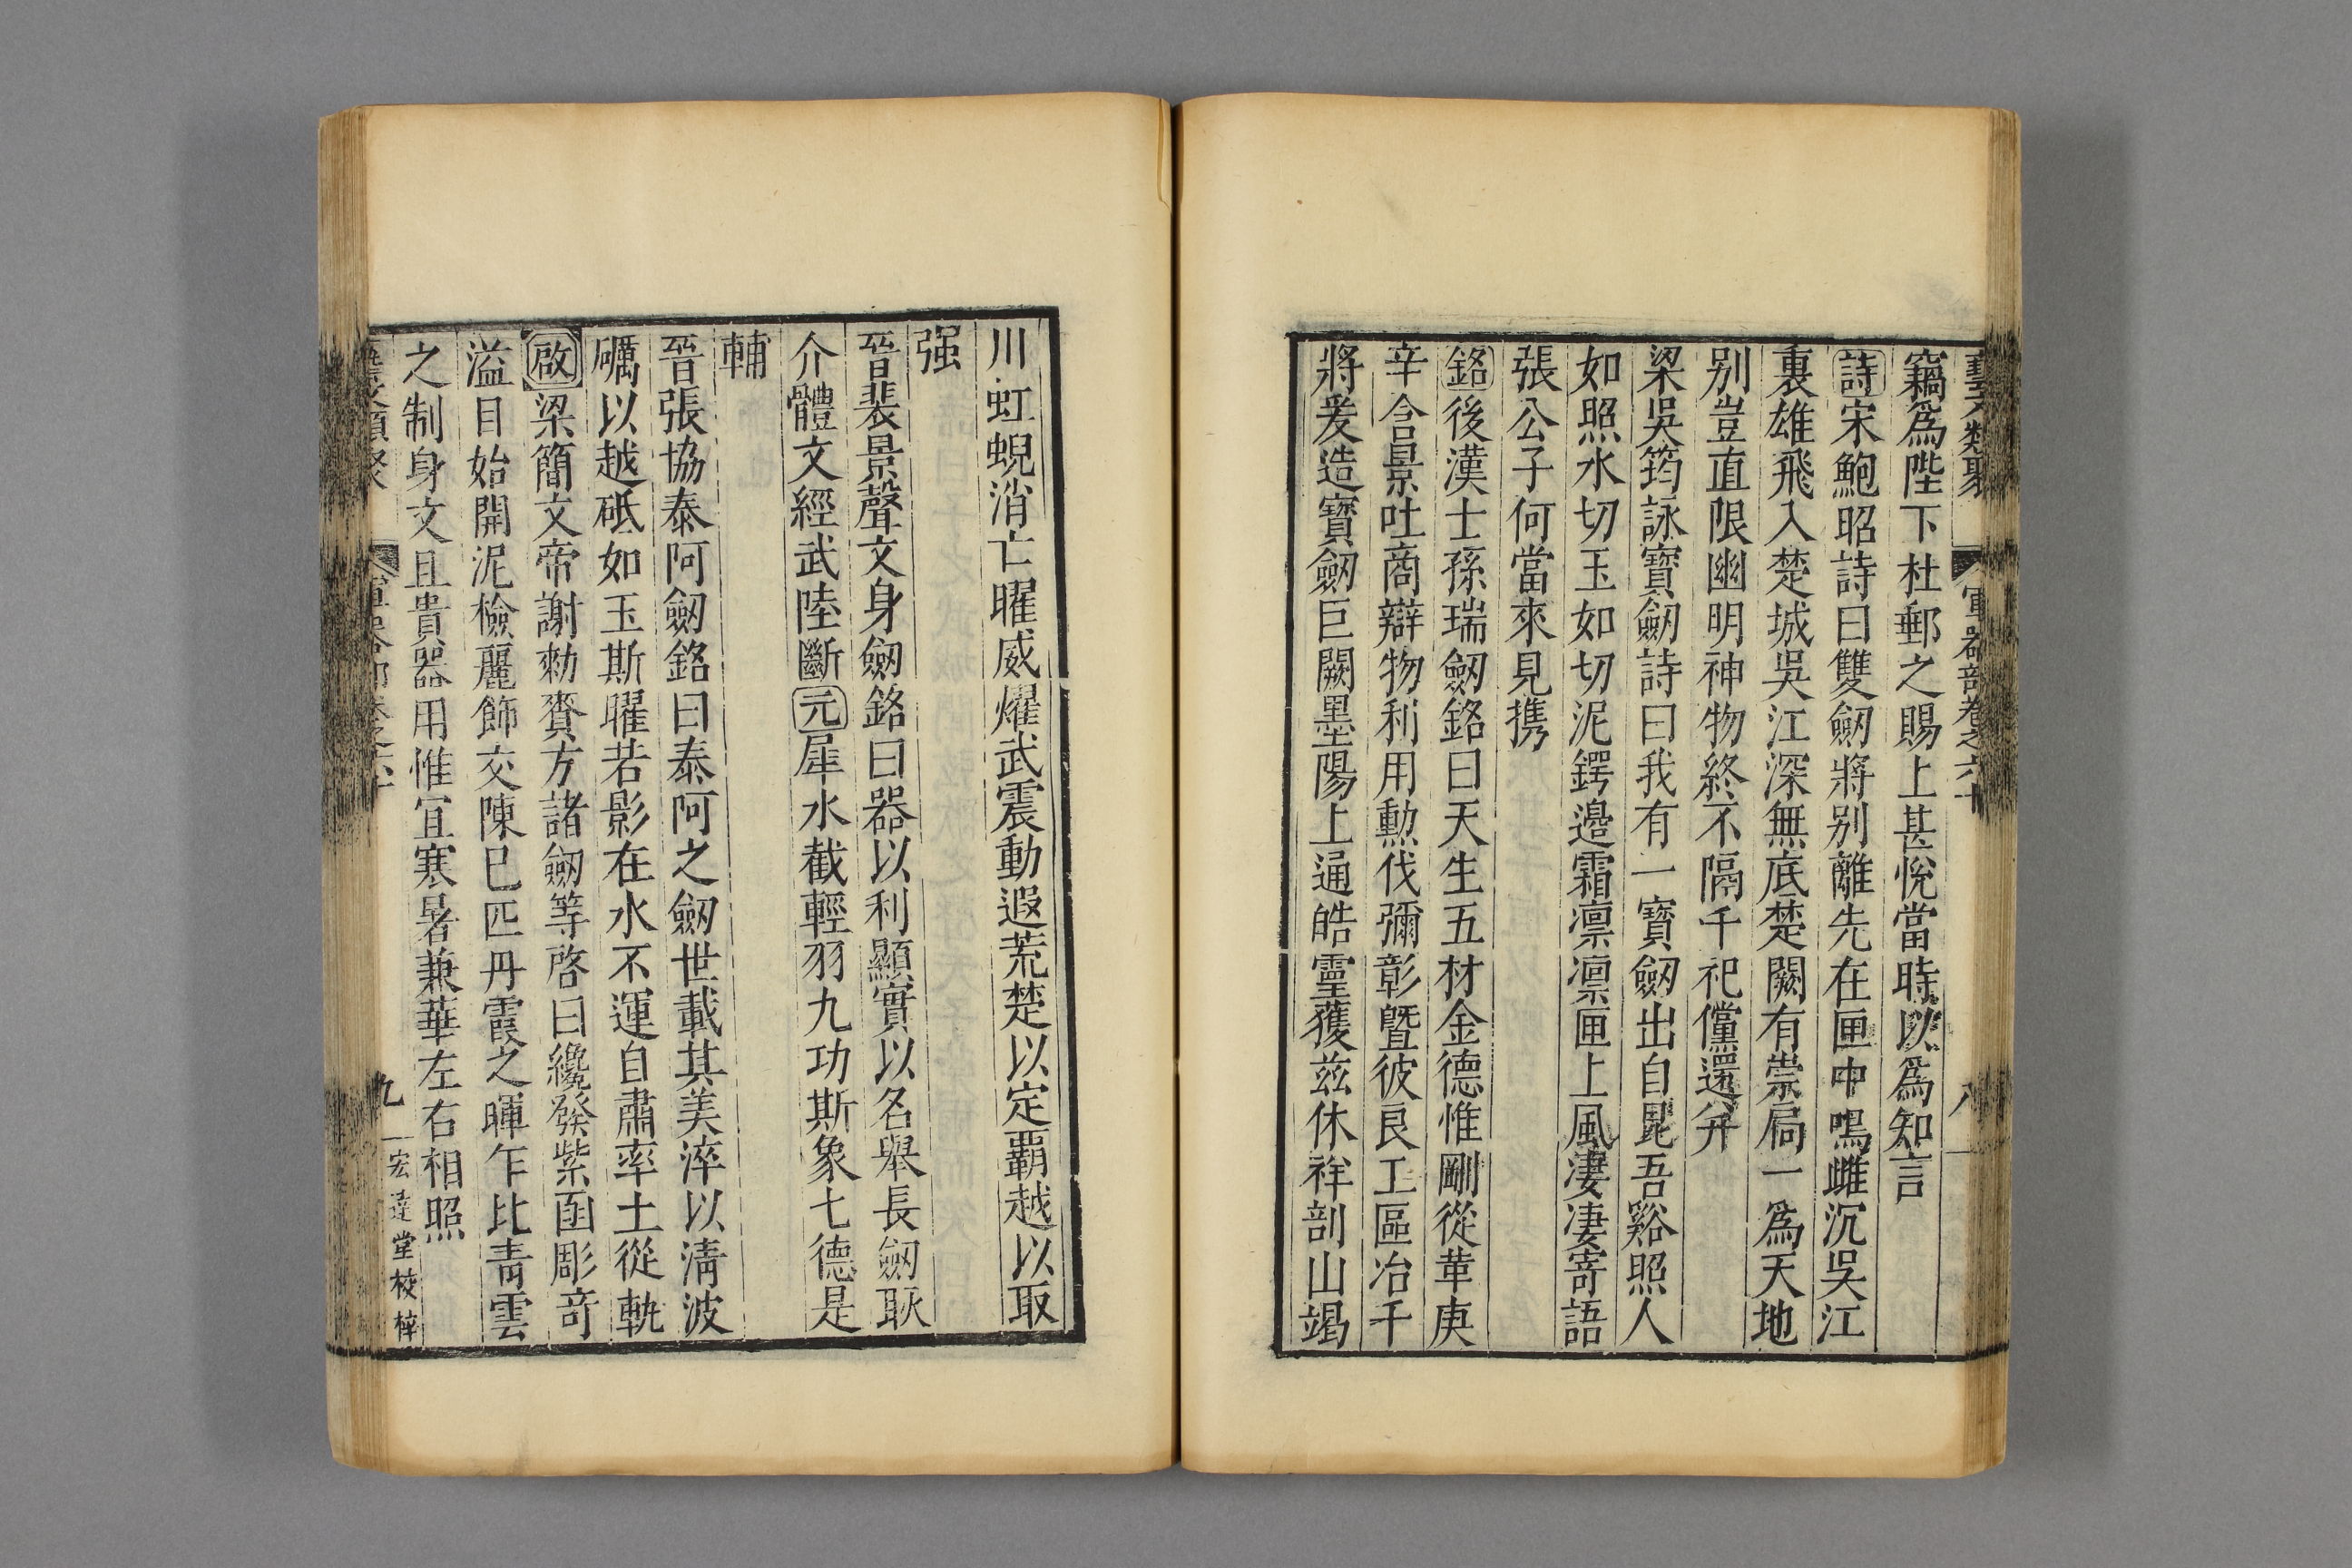 藝文類聚 軍器部卷之六十 八
竊爲陛下杜郵之賜上甚悅當時以爲知言
詩宋鮑昭詩曰雙劒將别離先在匣中鳴雌沉吳江
裏雄飛入楚城吳江深無底楚闕有崇扄一爲天地
别豈直限幽明神物終不隔千祀儻還弁
梁吳筠詠寶劒詩曰我有一寶劒出自昆吾谿照人
如照水切玉如切泥鍔邉霜凛凛匣上風凄凄寄語
張公子何當來見携
銘後漢士孫瑞劒銘曰天生五材金德惟剛從革庚
辛含景吐商辯物利用勲伐彌彰曁彼良工區冶千
將爰造寶劒巨闕墨陽上通皓靈獲兹休祥剖山竭
川虹蜺消亡曜威燿武震動遐荒楚以定覇越以取
强
晉裴景聲文身劒銘曰器以利顯實以名舉長劒耿
介體文經武陸斷元犀水截輕羽九功斯象七德是
輔
晉張協泰阿劒銘曰泰阿之劒世載其美淬以清波
礪以越砥如玉斯曜若影在水不運自肅率土從軌
啟梁簡文帝謝勑賚方諸劒等啓曰纔發紫函彫竒
溢目始開泥檢麗飾交陳巳匹丹霞之暉乍比青雲
之制身文且貴器用惟宜寒暑兼華左右相照
藝文類聚 軍器部卷之六十 九 宏達堂校梓